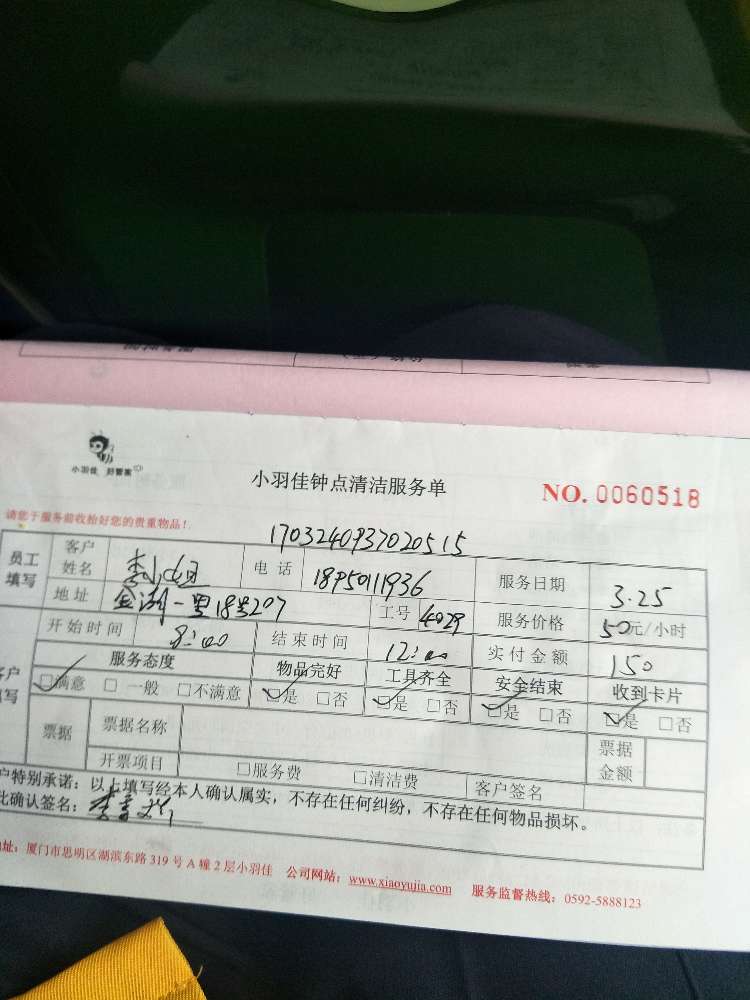 小羽佳 好管家
小羽佳钟点清洁服务单
NO. 0060518
请您于服务前收拾好您的贵重物品!
1703240937020515
员工填写
客户姓名 李小姐 电 话 18950111936 服务日期 3.25
地 址 金湖一里18号207 工号 4029 服务价格 50元/小时
开始时间 9:00 结束时间 12:00 实付金额 150
服务态度 物品完好 工具齐全 安全结束 收到卡片
☑满意 □一般 □不满意 ☑是 □否 ☑是 □否 ☑是 □否 ☑是 □否
票据 票据名称 票据金额
开票项目 □服务费 □清洁费 客户签名
户特别承诺:以上填写经本人确认属实,不存在任何纠纷,不存在任何物品损坏。
此确认签名:
址:厦门市思明区湖滨东路319号A幢2层小羽佳 公司网站:www.xiaoyujia.com 服务监督热线:0592-5888123